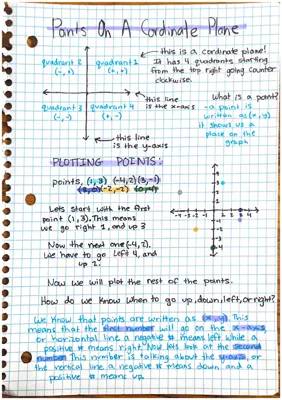 Points On A Cordinate Plane
quadrant 2
(-,+)
quadrant 1
(+,+)
this is a cordinate plane!
It has 4 quadrants starting
from the top right going counter
clockwise.
quadrant 3
(-,-)
quadrant 4
(+,-)
this line
is the x-axis
this line
is the y-axis
What is a point?
-a point is
written as (x,y)
it shows us a
place on the
graph
PLOTTING POINTS:
points, (1,3) (-4,2) (3,-1)
(-2,-2)
Lets start with the first
point (1,3). This means
we go right 1, and up 3
Now the next one (-4,2),
we have to go left 4, and
up 2.
Now we will plot the rest of the points.
How do we know when to go up, down, left, or right?
We know that points are written as (x,y). This
means that the first number will go on the x-axis
or horizontal line a negative # means left while a
positive # means right. Now lets look at the second
number. This number is talking about the y-axis, or
the vertical line a negative # means down and a
positive # means up.